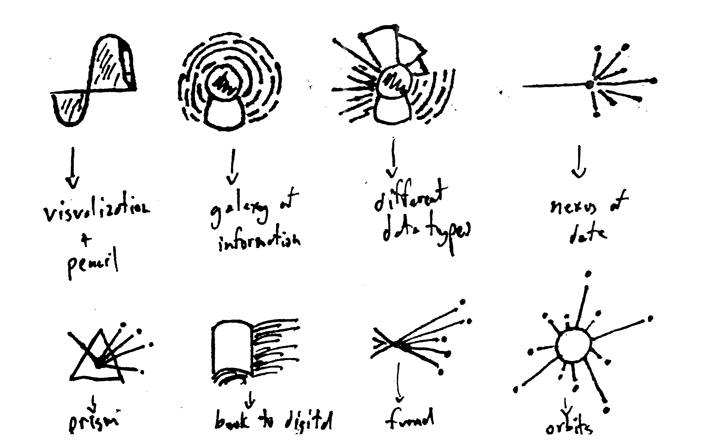 visualization
+
pencil
galaxy of
information
different
data types
nexus of
data
prism
book to digital
funnel
orbits